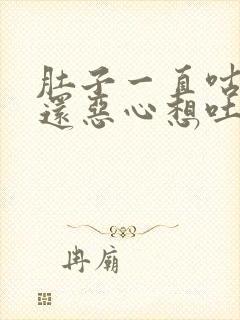 肚子一直咕
還惡心想吐
冉廟